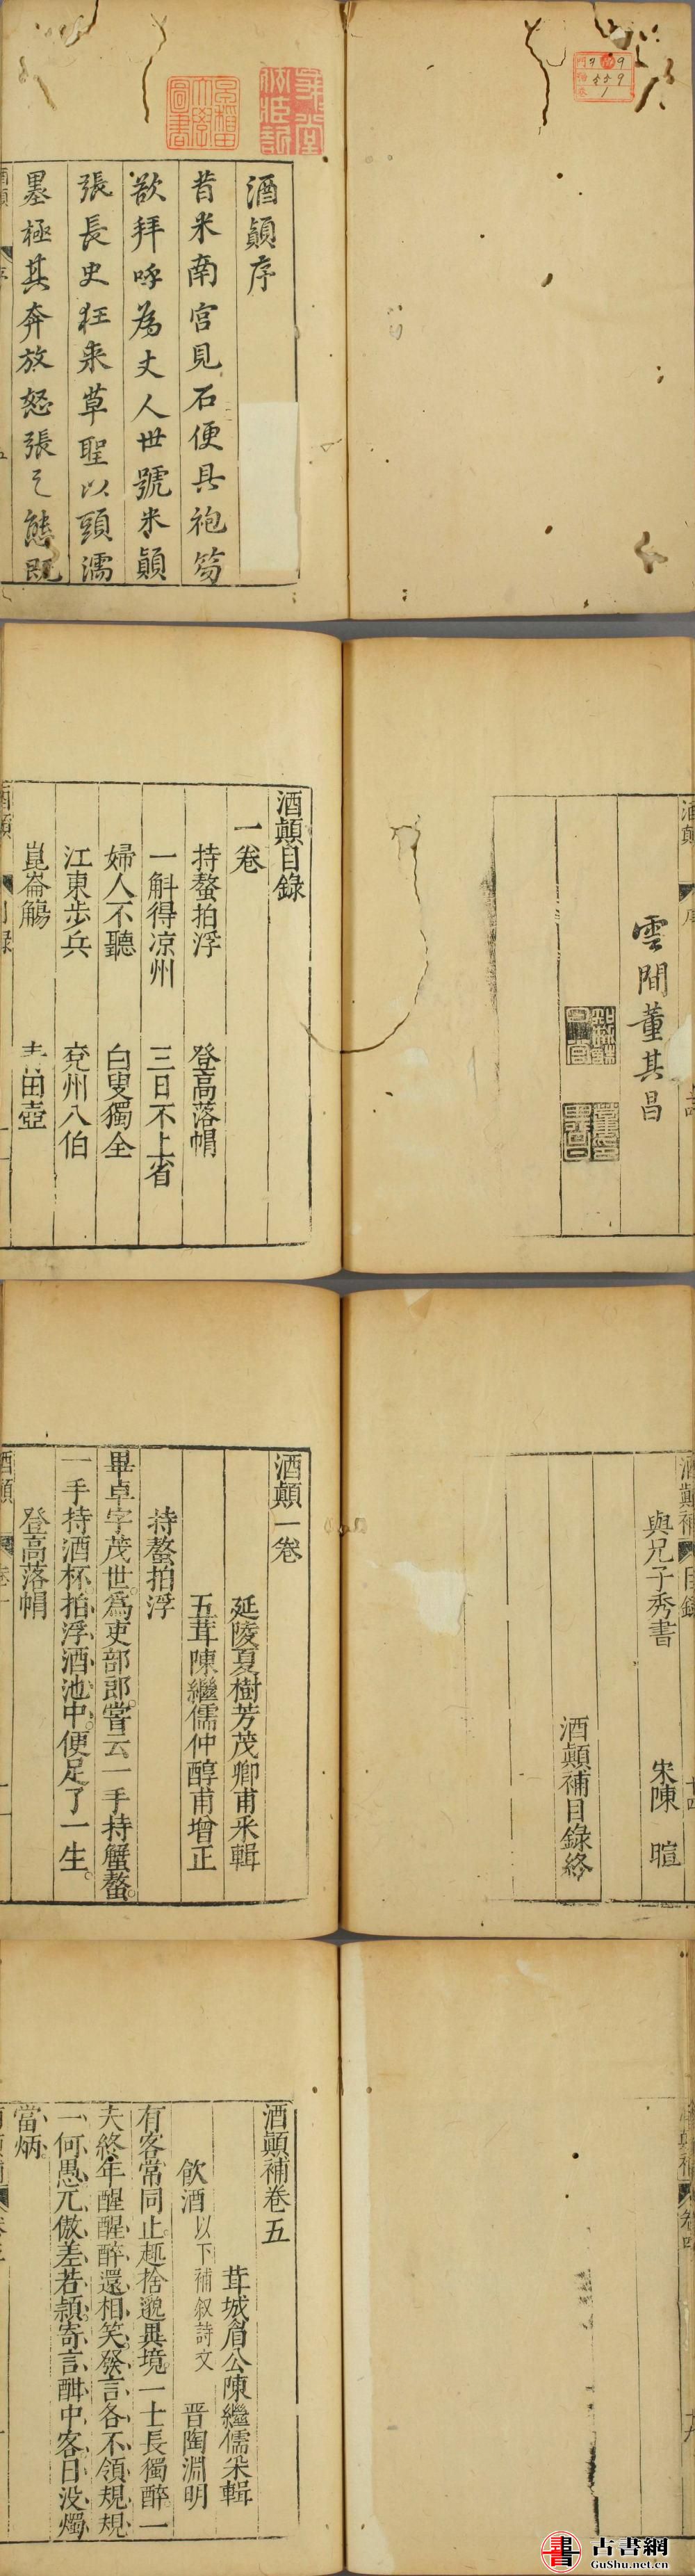 酒顛序
昔米南宮見石便具袍笏
欲拜呼為丈人世號米顛
張長史狂來草聖以頭濡
墨極其奔放怒張之態既
酒顛
雲間董其昌
酒顛目錄
一卷
持螯拍浮 登高落帽
一斛得凉州 三日不上省
婦人不聽 白叟獨全
江東步兵 兗州八伯
崑崙觴 青田壺
酒顛補 目錄 十四
與兄子秀書 宋陳暄
酒顛補目錄終
酒顛一卷
延陵夏樹芳茂卿甫采輯
五茸陳繼儒仲醇甫增正
持螯拍浮
畢卓字茂世。爲吏部郎。嘗云一手持蟹螯。
一手持酒杯。拍浮酒池中。便足了一生。
登高落帽
酒顛補卷五
茸城眉公陳繼儒采輯
飲酒 以下補叙詩文 晋陶淵明
有客常同止。趣捨邈異境。一士長獨醉。一
夫終年醒。醒醉還相笑。發言各不領。規規
一何愚。兀傲差若頴。寄言酣中客。日没燭
當炳。
古書網
GuShu.net.cn